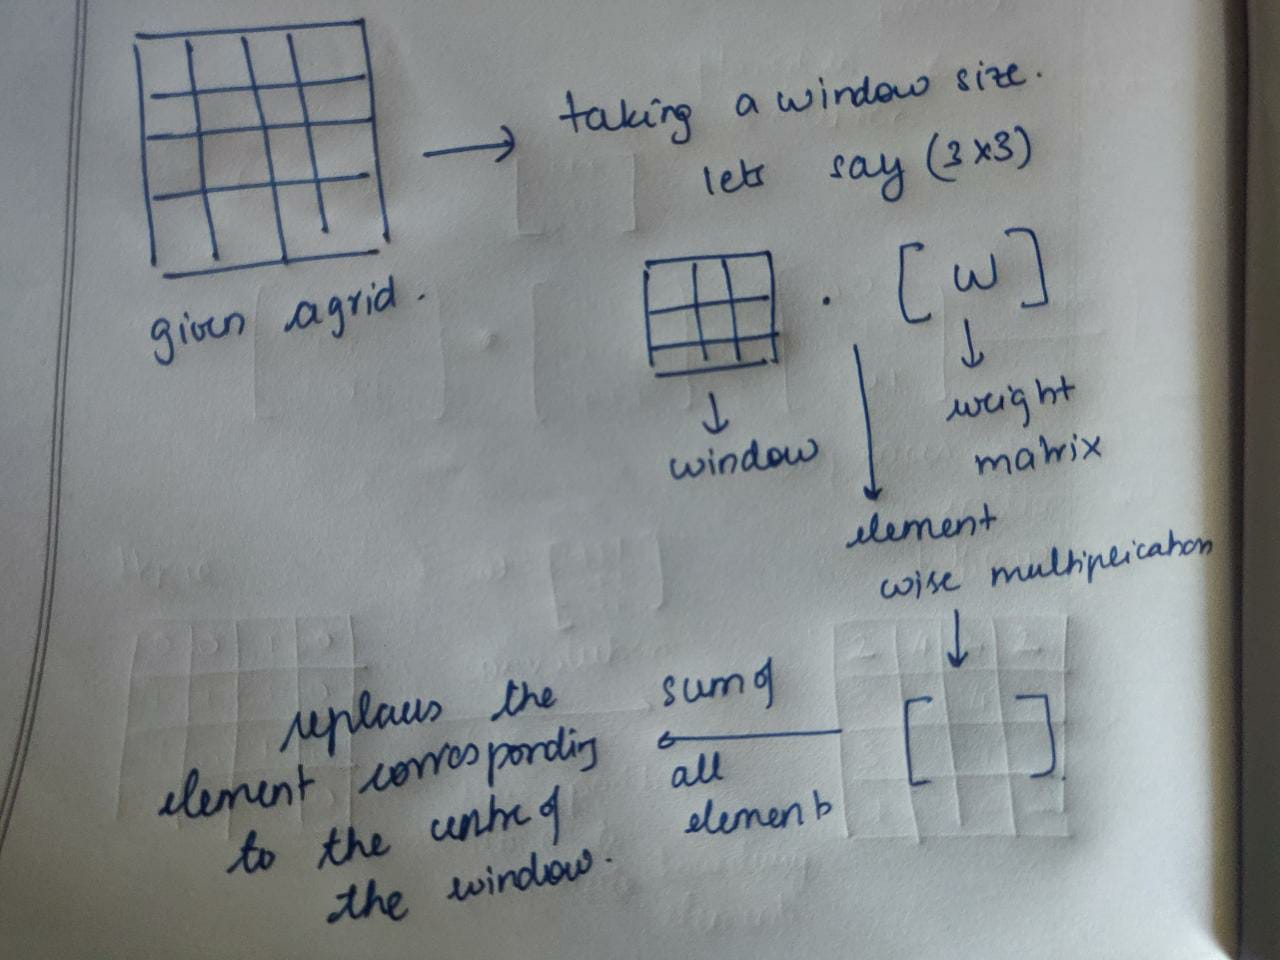 taking a window size.
lets say (3x3)
given a grid.
. [ W ]
window
weight
matrix
element
wise multiplication
[ ]
sum of
all
elements
replaces the
element corresponding
to the centre of
the window.